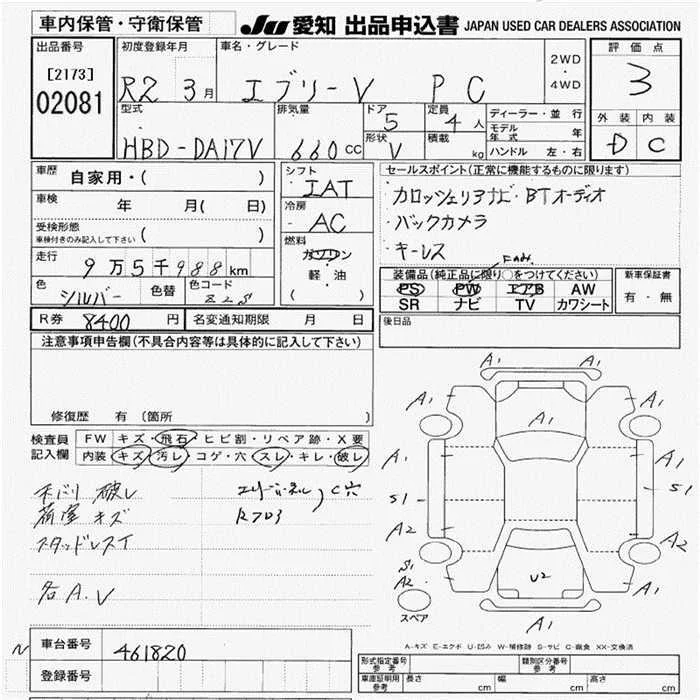 車内保管・守衛保管
JU 愛知 出品申込書 JAPAN USED CAR DEALERS ASSOCIATION
出品番号
[2173]
02081
初度登録年月
R2 3月
車名・グレード
エブリーV PC
2WD
・
4WD
評価点
3
外装 内装
D C
型式
HBD-DA17V
排気量
660cc
ドア
5
形状
V
定員
4人
積載
kg
ディーラー・並行
モデル年式 年
ハンドル 左・右
車歴 自家用・( )
車検 年 月( 日)
受検形態
車検付きのみ記入して下さい ( )
走行
9万5千988km
色
シルバー
色替
色コード
Z2S
シフト
IAT
冷房
AC
燃料
ガソリン
軽・油
( )
セールスポイント(正常に機能するものに限ります)
カロッツェリアナビ・BTオーディオ
バックカメラ
キーレス
装備品(純正品に限り○をつけてください)
PS PW エアB AW
SR ナビ TV カワシート
新車保証書
有・無
R券 8400円
名変通知期限 月 日
後日品
注意事項申告欄(不具合内容等は具体的に記入して下さい)
修復歴 有(箇所 )
検査員
記入欄
FW キズ・飛石・ヒビ割・リペア跡・X要
内装 キズ・汚レ・コゲ・穴・スレ・キレ・破レ
破レ
荷室 キズ
スタッドレスT
各A.V
C穴
A1
A1
A1
A1
A1
A1
S1
S1
A2
A2
S1
A2
A1
A1
U2
A1
スペア
A-キズ E-エクボ U-凹み W-補修跡 S-サビ C-腐食 XX-交換済
車台番号
461820
登録番号
N
型式指定番号
参考
類別区分番号
参考
車庫証明用
参考
長さ cm 幅 cm 高さ cm